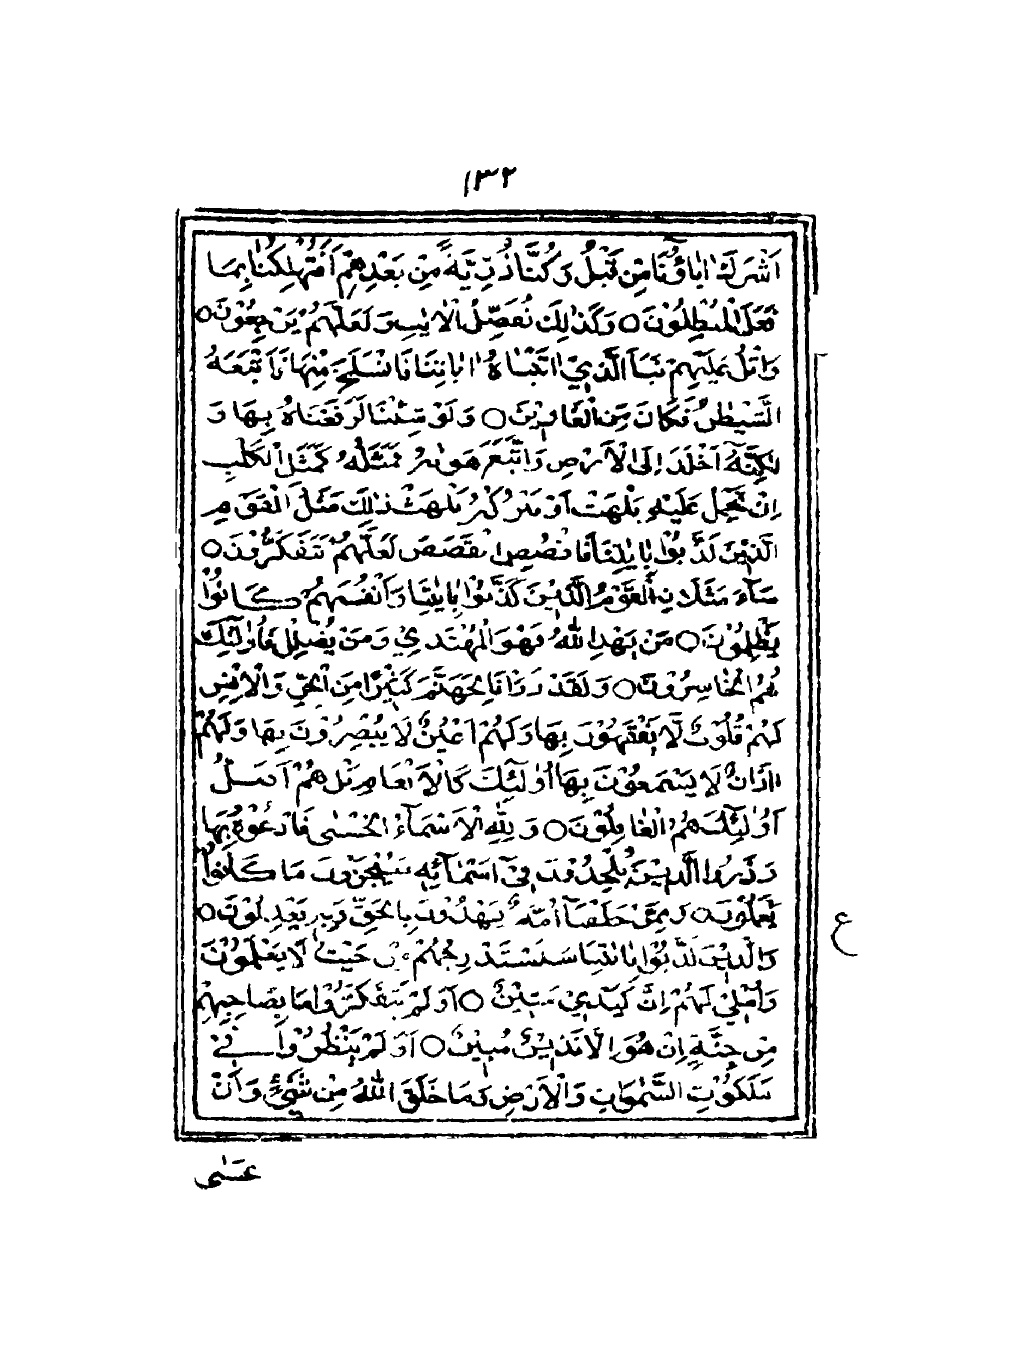 ١٣٢
اَشْرَكَ اٰبَاؤُنَا مِنْ قَبْلُ وَكُنَّا ذُرِّيَّةً مِنْ بَعْدِهِمْ اَفَتُهْلِكُنَا بِمَا
فَعَلَ الْمُبْطِلُوْنَ ○ وَكَذٰلِكَ نُفَصِّلُ الْاٰيٰتِ وَلَعَلَّهُمْ يَرْجِعُوْنَ ○
وَاتْلُ عَلَيْهِمْ نَبَاَ الَّذِيْ اٰتَيْنَاهُ اٰيَاتِنَا فَانْسَلَخَ مِنْهَا فَاَتْبَعَهُ
الشَّيْطٰنُ فَكَانَ مِنَ الْغَاوِيْنَ ○ وَلَوْ شِئْنَا لَرَفَعْنَاهُ بِهَا وَ
لٰكِنَّهُ اَخْلَدَ اِلَى الْاَرْضِ وَاتَّبَعَ هَوٰىهُ فَمَثَلُهُ كَمَثَلِ الْكَلْبِ
اِنْ تَحْمِلْ عَلَيْهِ يَلْهَثْ اَوْ تَتْرُكْهُ يَلْهَثْ ذٰلِكَ مَثَلُ الْقَوْمِ
الَّذِيْنَ كَذَّبُوْا بِاٰيٰتِنَا فَاقْصُصِ الْقَصَصَ لَعَلَّهُمْ يَتَفَكَّرُوْنَ ○
سَآءَ مَثَلًا نِ الْقَوْمُ الَّذِيْنَ كَذَّبُوْا بِاٰيٰتِنَا وَاَنْفُسَهُمْ كَانُوْا
يَظْلِمُوْنَ ○ مَنْ يَهْدِ اللّٰهُ فَهُوَ الْمُهْتَدِيْ وَمَنْ يُضْلِلْ فَاُولٰئِكَ
هُمُ الْخَاسِرُوْنَ ○ وَلَقَدْ ذَرَاْنَا لِجَهَنَّمَ كَثِيْرًا مِنَ الْجِنِّ وَالْاِنْسِ
لَهُمْ قُلُوْبٌ لَّا يَفْقَهُوْنَ بِهَا وَلَهُمْ اَعْيُنٌ لَا يُبْصِرُوْنَ بِهَا وَلَهُمْ
اٰذَانٌ لَا يَسْمَعُوْنَ بِهَا اُولٰئِكَ كَالْاَنْعَامِ بَلْ هُمْ اَضَلُّ
اُولٰئِكَ هُمُ الْغَافِلُوْنَ ○ وَلِلّٰهِ الْاَسْمَآءُ الْحُسْنٰى فَادْعُوْهُ بِهَا
وَذَرُوا الَّذِيْنَ يُلْحِدُوْنَ فِيْ اَسْمَآئِهِ سَيُجْزَوْنَ مَا كَانُوْا
يَعْمَلُوْنَ ○ وَمِمَّنْ خَلَقْنَا اُمَّةٌ يَهْدُوْنَ بِالْحَقِّ وَبِهِ يَعْدِلُوْنَ ○
وَالَّذِيْنَ كَذَّبُوْا بِاٰيٰتِنَا سَنَسْتَدْرِجُهُمْ مِنْ حَيْثُ لَا يَعْلَمُوْنَ
وَاُمْلِيْ لَهُمْ اِنَّ كَيْدِيْ مَتِيْنٌ ○ اَوَلَمْ يَتَفَكَّرُوْا مَا بِصَاحِبِهِمْ
مِنْ جِنَّةٍ اِنْ هُوَ اِلَّا نَذِيْرٌ مُبِيْنٌ ○ اَوَلَمْ يَنْظُرُوْا فِيْ
مَلَكُوْتِ السَّمٰوَاتِ وَالْاَرْضِ وَمَا خَلَقَ اللّٰهُ مِنْ شَيْءٍ وَاَنْ
ع
عَسٰى